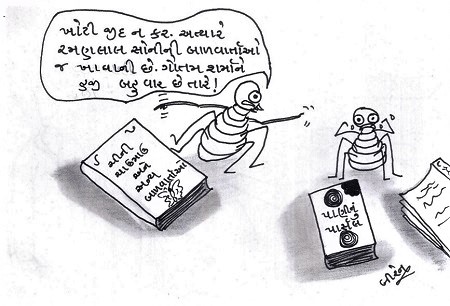 ખોટી જીદ ન કર. અત્યારે
રમણલાલ સોનીની બાળવાર્તાઓ
જ ખાવાની છે. ગૌતમ શર્માને
હજી બહુ વાર છે તારે!
અને
અન્ય
બાળવાર્તાઓ
પાણીનું
પાર્સલ